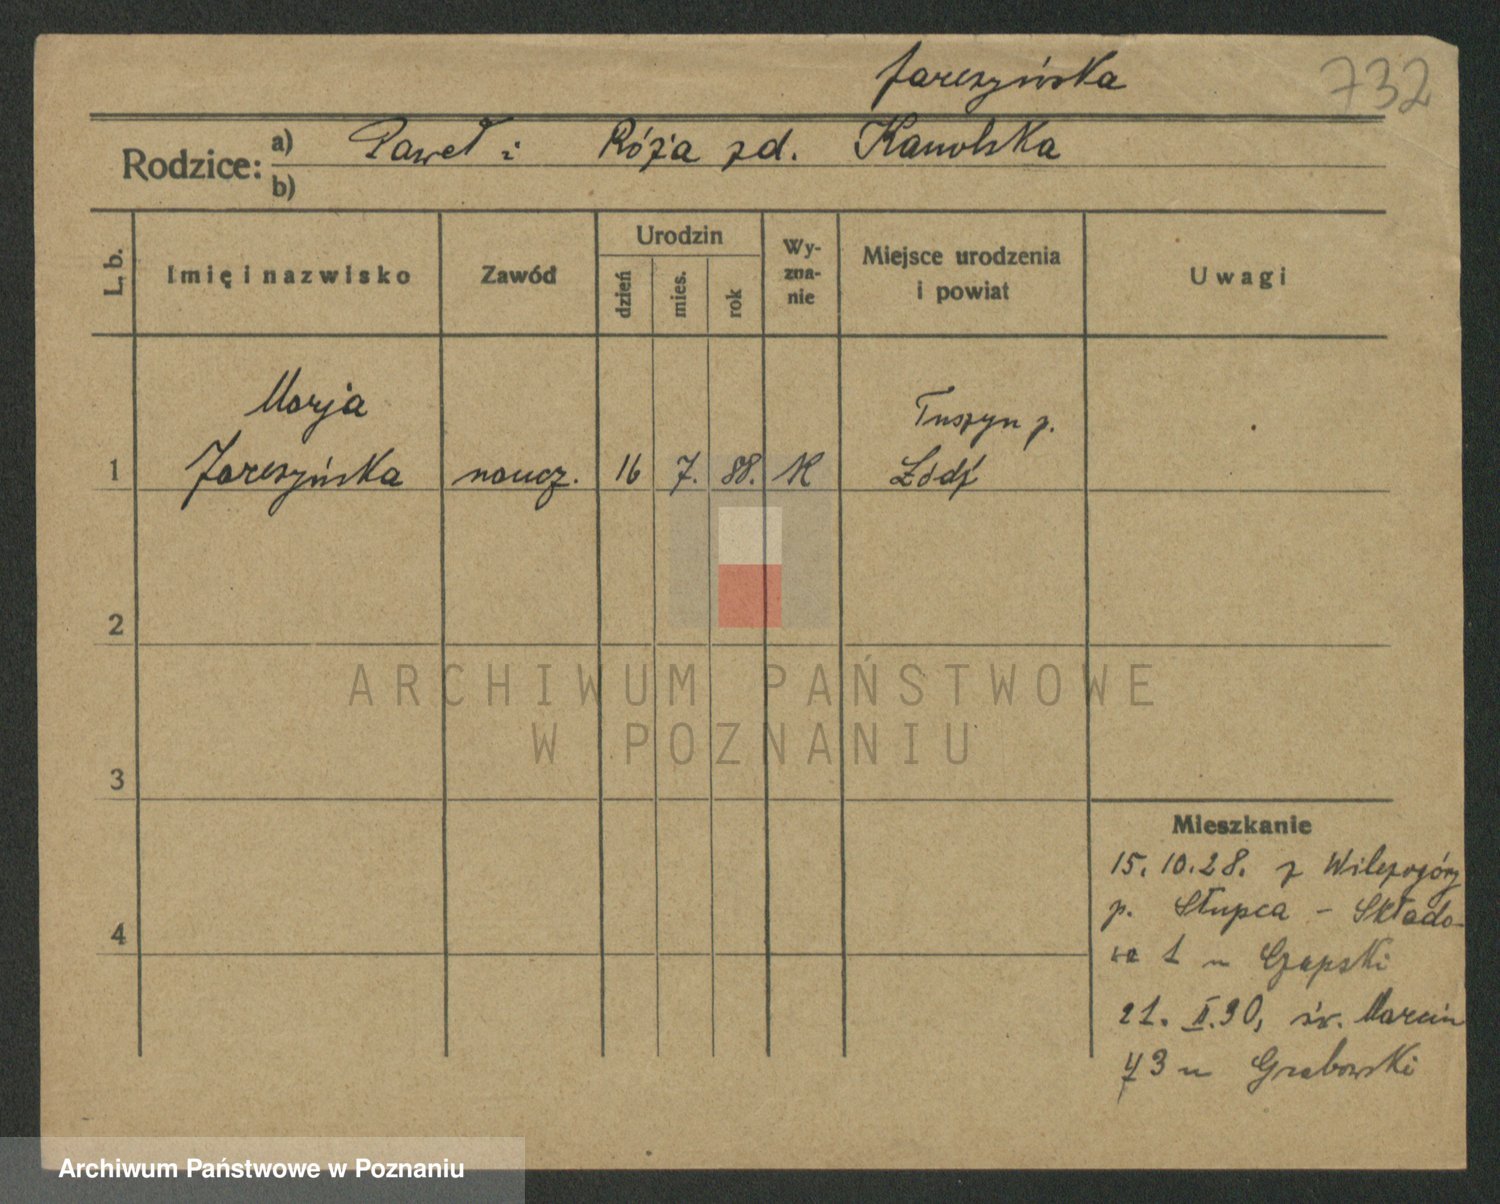 Jareszyńska
732
Rodzice: a) Paweł i Róża zd. Kanolska
b)
L. b.
Imię i nazwisko
Zawód
Urodzin
dzień
mies.
rok
Wy-
zna-
nie
Miejsce urodzenia
i powiat
Uwagi
Marja
Tuszyn p.
1 Jareszyńska naucz. 16 7. 88. K Łódź
2
ARCHIWUM PAŃSTWOWE
W POZNANIU
3
Mieszkanie
15.10.28. z
p. Słupca - Składo-
4
wa 1 u Czapski
21. II. 30, św. Marcin
43 u Grabowski
Archiwum Państwowe w Poznaniu